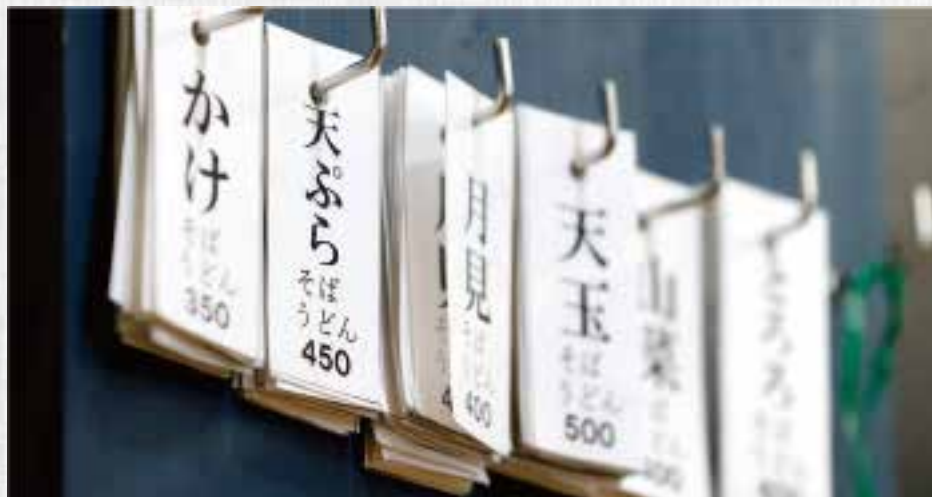 かけ
そば
うどん
350
天ぷら
そば
うどん
450
月見
そば
うどん
400
天玉
そば
うどん
500
山菜